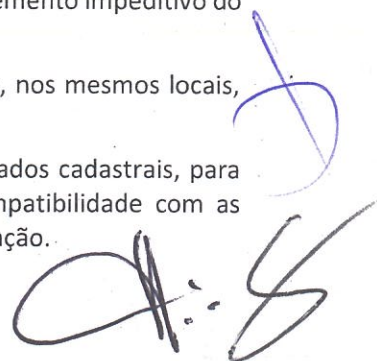 emento impeditivo do
, nos mesmos locais,
ados cadastrais, para
npatibilidade com as
nção.